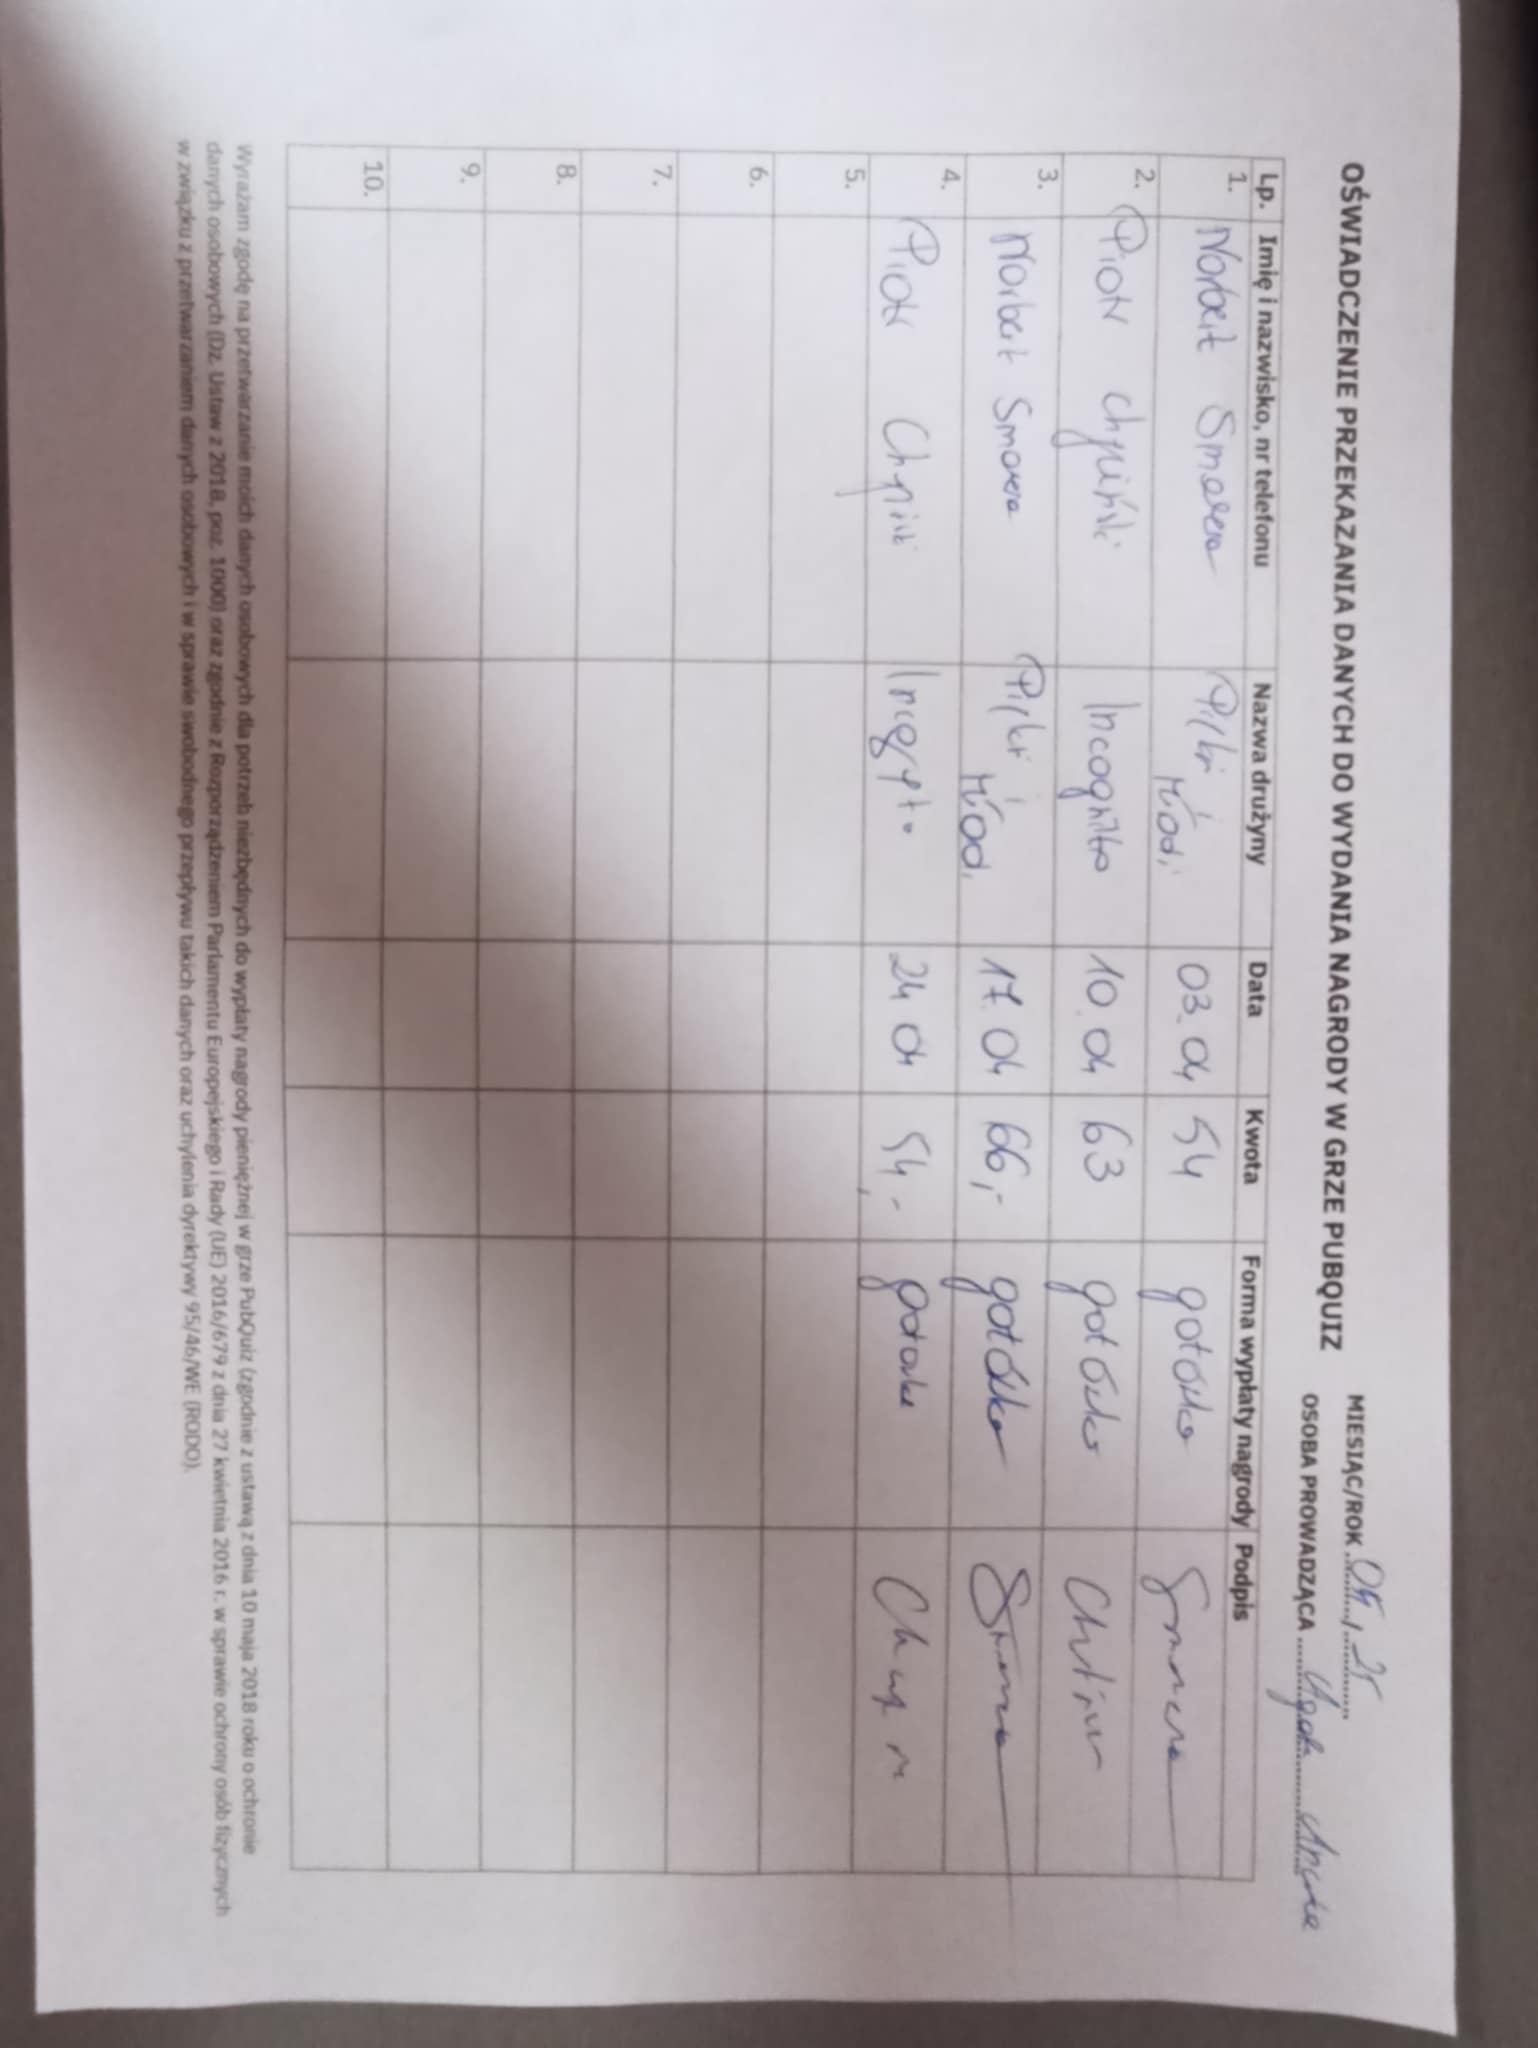 OŚWIADCZENIE PRZEKAZANIA DANYCH DO WYDANIA NAGRODY W GRZE PUBQUIZ
MIESIĄC/ROK 04 / 25
OSOBA PROWADZĄCA
Lp. Imię i nazwisko, nr telefonu Nazwa drużyny Data Kwota Forma wypłaty nagrody Podpis
1. Norbert Smarera i 03.04 54 gotówka
2. Piotr Incognito 10.04 63 gotówka
3. Norbert i 17.04 66,- gotówka
4. Piotr 24 04 54,- gotówka
5.
6.
7.
8.
9.
10.
Wyrażam zgodę na przetwarzanie moich danych osobowych dla potrzeb niezbędnych do wypłaty nagrody pieniężnej w grze PubQuiz (zgodnie z ustawą z dnia 10 maja 2018 roku o ochronie
danych osobowych (Dz. Ustaw z 2018, poz. 1000) oraz zgodnie z Rozporządzeniem Parlamentu Europejskiego i Rady (UE) 2016/679 z dnia 27 kwietnia 2016 r. w sprawie ochrony osób fizycznych
w związku z przetwarzaniem danych osobowych i w sprawie swobodnego przepływu takich danych oraz uchylenia dyrektywy 95/46/WE (RODO).